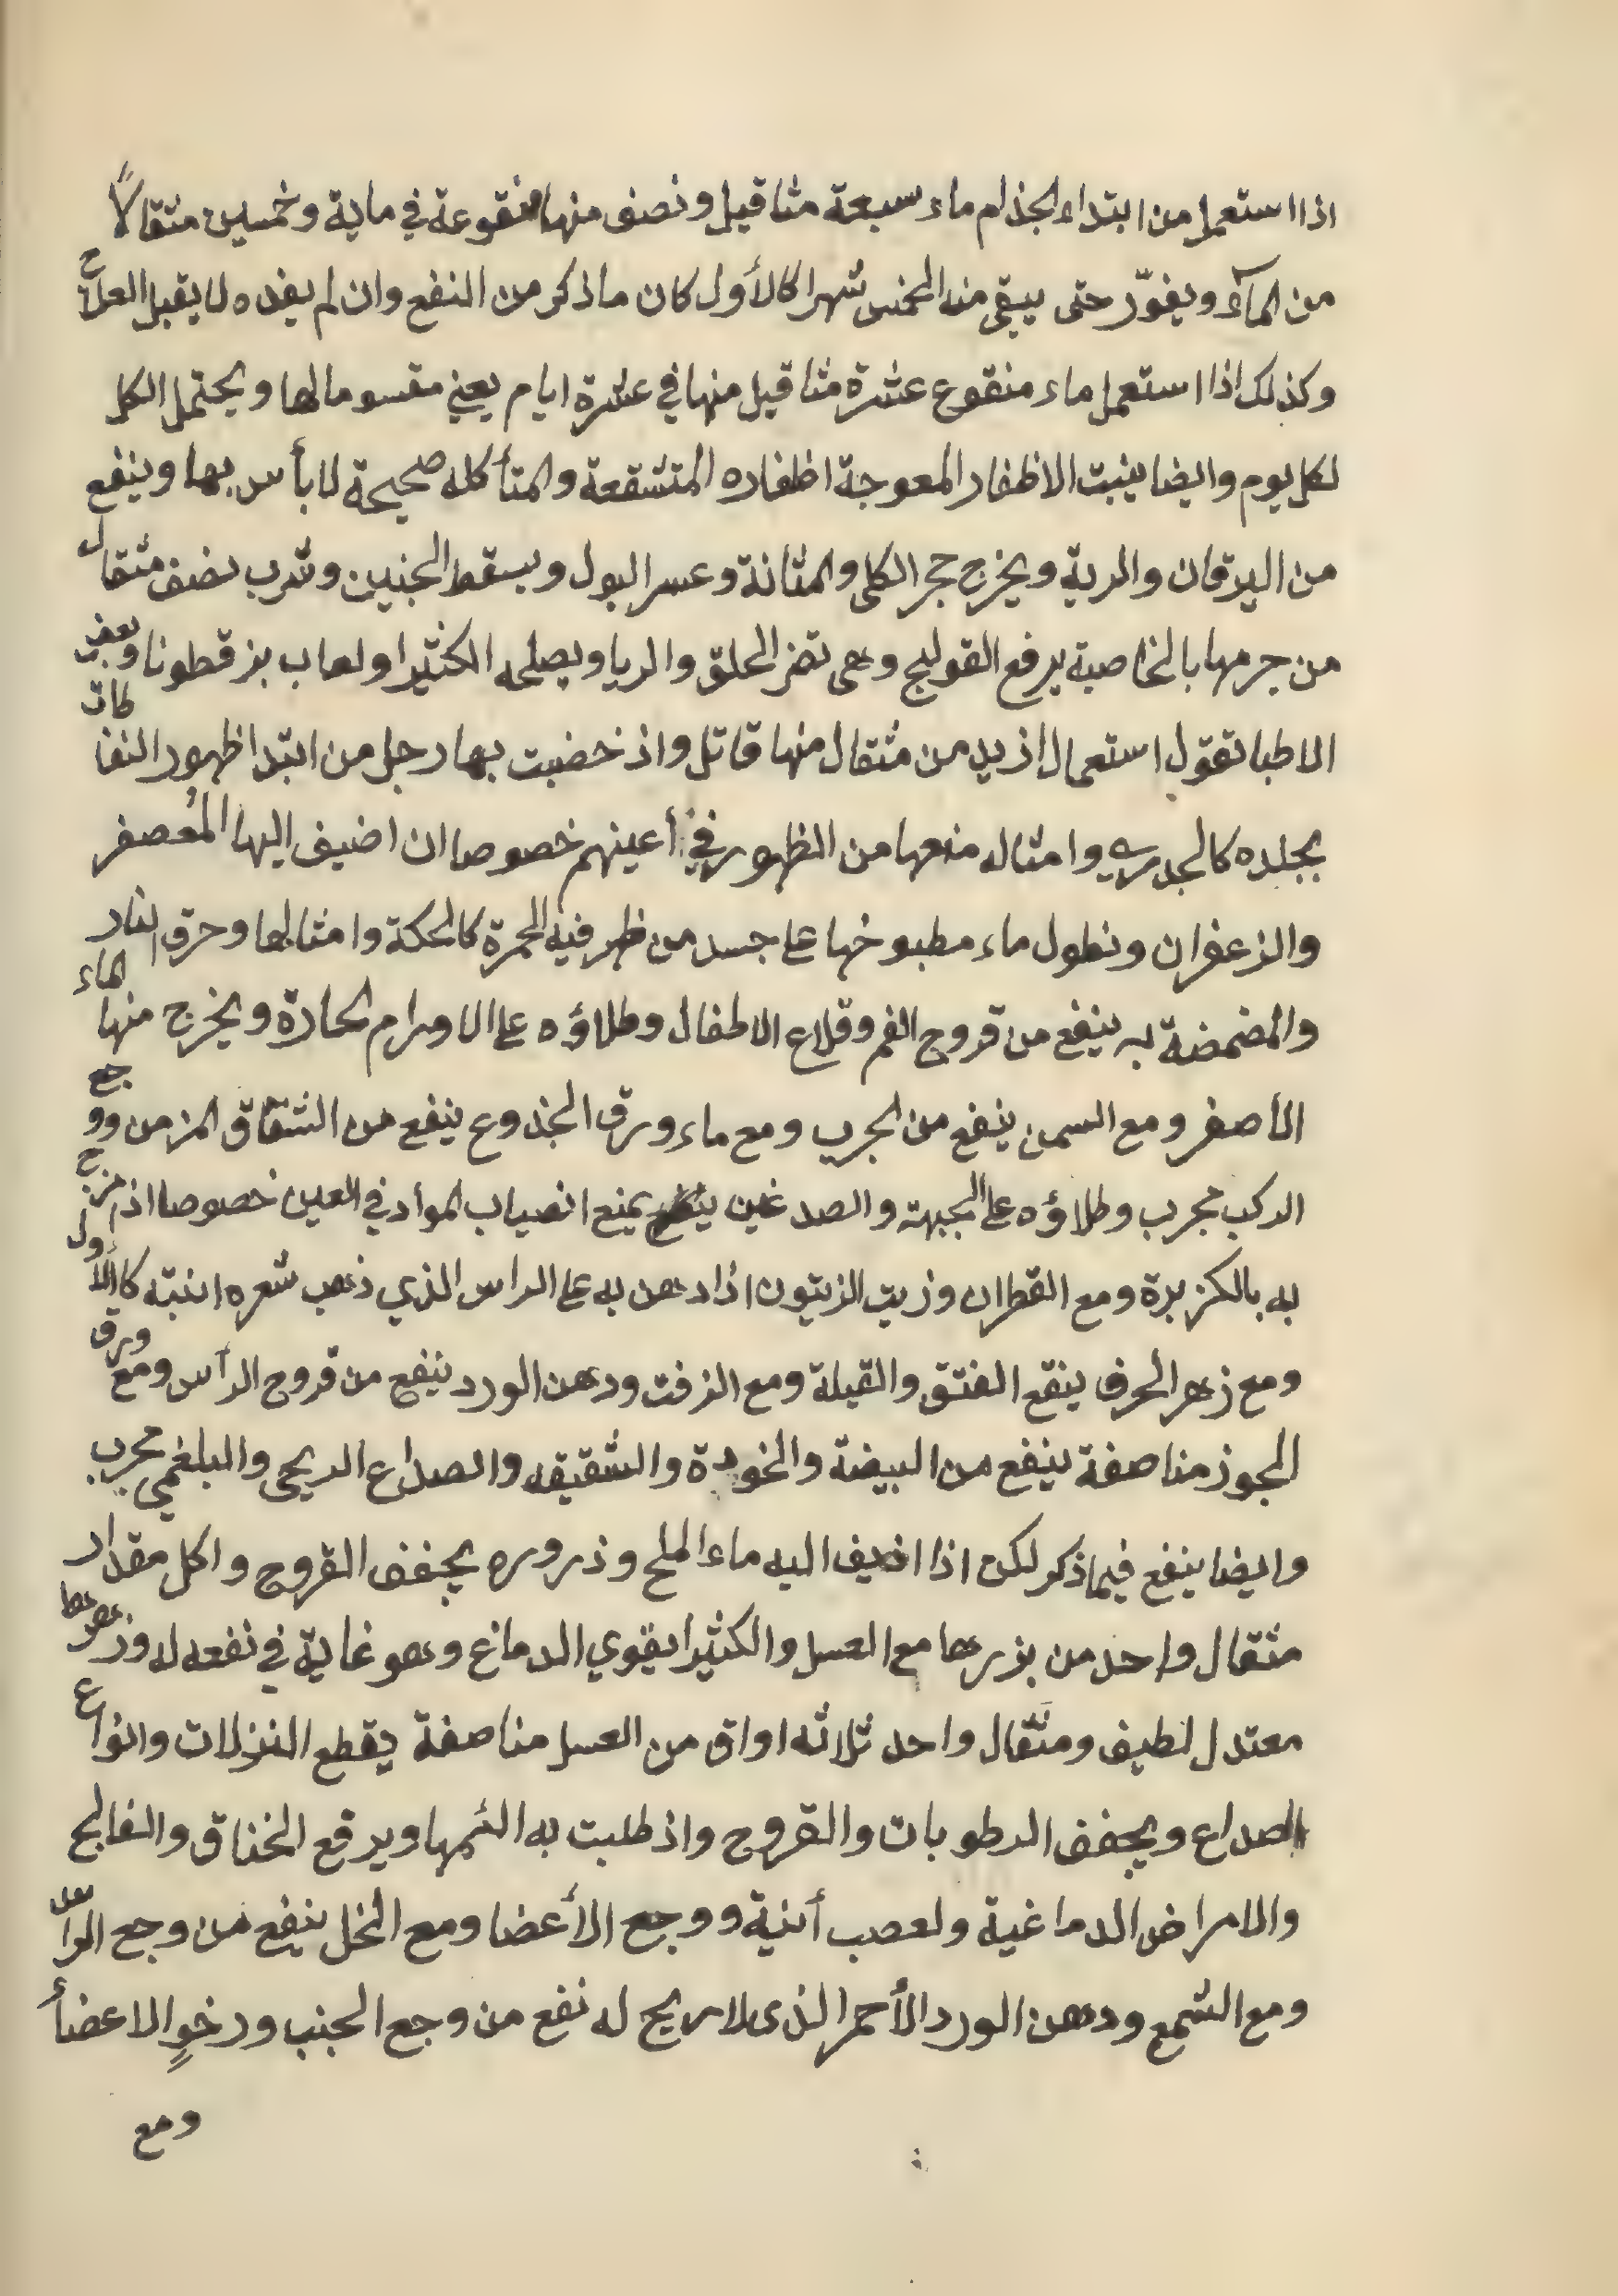 اذا استعمل من ابتداء الجذام ماء سبعة مثاقيل ونصف منها منقوعة في ماية وخمسين مثقالاً
من المآء ويفوّر حتى يبقى منه الخمس شهرا كالأول كان ما ذكر من النفع وان لم يفده لا يقبل العلاج
وكذلك اذا استعمل ماء منقوع عشرة مثاقيل منها في عشرة ايام يعني مقسوما لها ويحتمل الكل
لكل يوم وايضا ينبت الاظفار المعوجة اظفاره المتشقعة والمتأكله صحيحة لا بأس بها وينفع
من اليرقان والرية ويخرج حجر الكلى والمثانة وعسر البول ويسقط الجنين وشرب نصف مثقال
من جرمها بالخاصية يرفع القولنج وهى تضر الحلق والريا ويصلحه الكثيرا ولعاب بزر قطونا وبعض
الاطبا تقول استعمال ازيد من مثقال منها قاتل واذ خضبت بها رجل من ابتدا ظهور النفاطات
بجلده كالجدري وامثاله منعها من الظهور في أعينهم خصوصا ان اضيف اليها المُعصفر
والزعفران ونطول ماء مطبوخها على جسد من ظهر فيه الحمرة كالحكة وامثالها وحرق النار
والمضمضة به ينفع من قروح الفم وقلاع الاطفال وطلاؤه على الاورام الحارة ويخرج منها الماء
الأصفر ومع السمن ينفع من الجرب ومع ماء ورق الجذوع ينفع من الشقاق المزمن ووجع
الركب مجرب وطلاؤه على الجبهة والصدغين يمنع انصياب المواد في العين خصوصا اذا مزج
به بالكزبرة ومع القطران وزيت الزيتون اذا دهن به على الراس الذي ذهب شعره انبته كالأول
ومع زهر الحرف ينقع الفتق والقيلة ومع الزفت ودهن الورد ينفع من قروح الرأس ومع ورق
الجوز مناصفة ينفع من البيضة والخودة والشقيقه والصداع الريحى والبلغمي مجرب
وايضا ينفع فيما ذكر لكن اذا اضيف اليه ماء الملح وذروره يجفف القروح واكل مقدار
مثقال واحد من بزرها مع العسل والكثيرا يقوي الدماغ وهو غاية في نفعه له
معتدل لطيف ومثقال واحد ثلاثه اواق من العسل مناصفة يقطع النزلات وانواع
الصداع ويجفف الرطوبات والقروح واذ طلبت به الئمها ويرفع الخناق والفالج
والامراض الدماغية ولعصب أنية ووجع الأعضا ومع الخل ينفع من وجع
ومع الشمع ودهن الورد الأحمر الذى لا ريح له نفع من وجع الجنب ورخوٍ الاعضأ
ومع